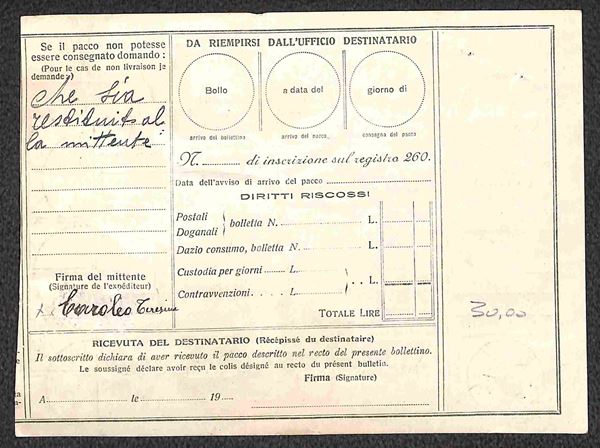 Se il pacco non potesse
essere consegnato domando :
(Pour le cas de non livraison je
demande:)
che sia
restituito al
la mittente
Firma del mittente
(Signature de l'expéditeur)
x Caroleo Teresina
DA RIEMPIRSI DALL'UFFICIO DESTINATARIO
Bollo a data del giorno di
arrivo del bollettino arrivo del pacco consegna del pacco
N. ............ di inscrizione sul registro 260.
Data dell'avviso di arrivo del pacco
DIRITTI RISCOSSI
Postali
Doganali
bolletta N. L.
Dazio consumo, bolletta N. L.
Custodia per giorni L.
Contravvenzioni. . . . L.
L.
TOTALE LIRE
30,00
RICEVUTA DEL DESTINATARIO (Récépissé du destinataire)
Il sottoscritto dichiara di aver ricevuto il pacco descritto nel recto del presente bollettino.
Le soussigné déclare avoir reçu le colis désigné au recto du présent bulletin.
Firma (Signature)
A le 19